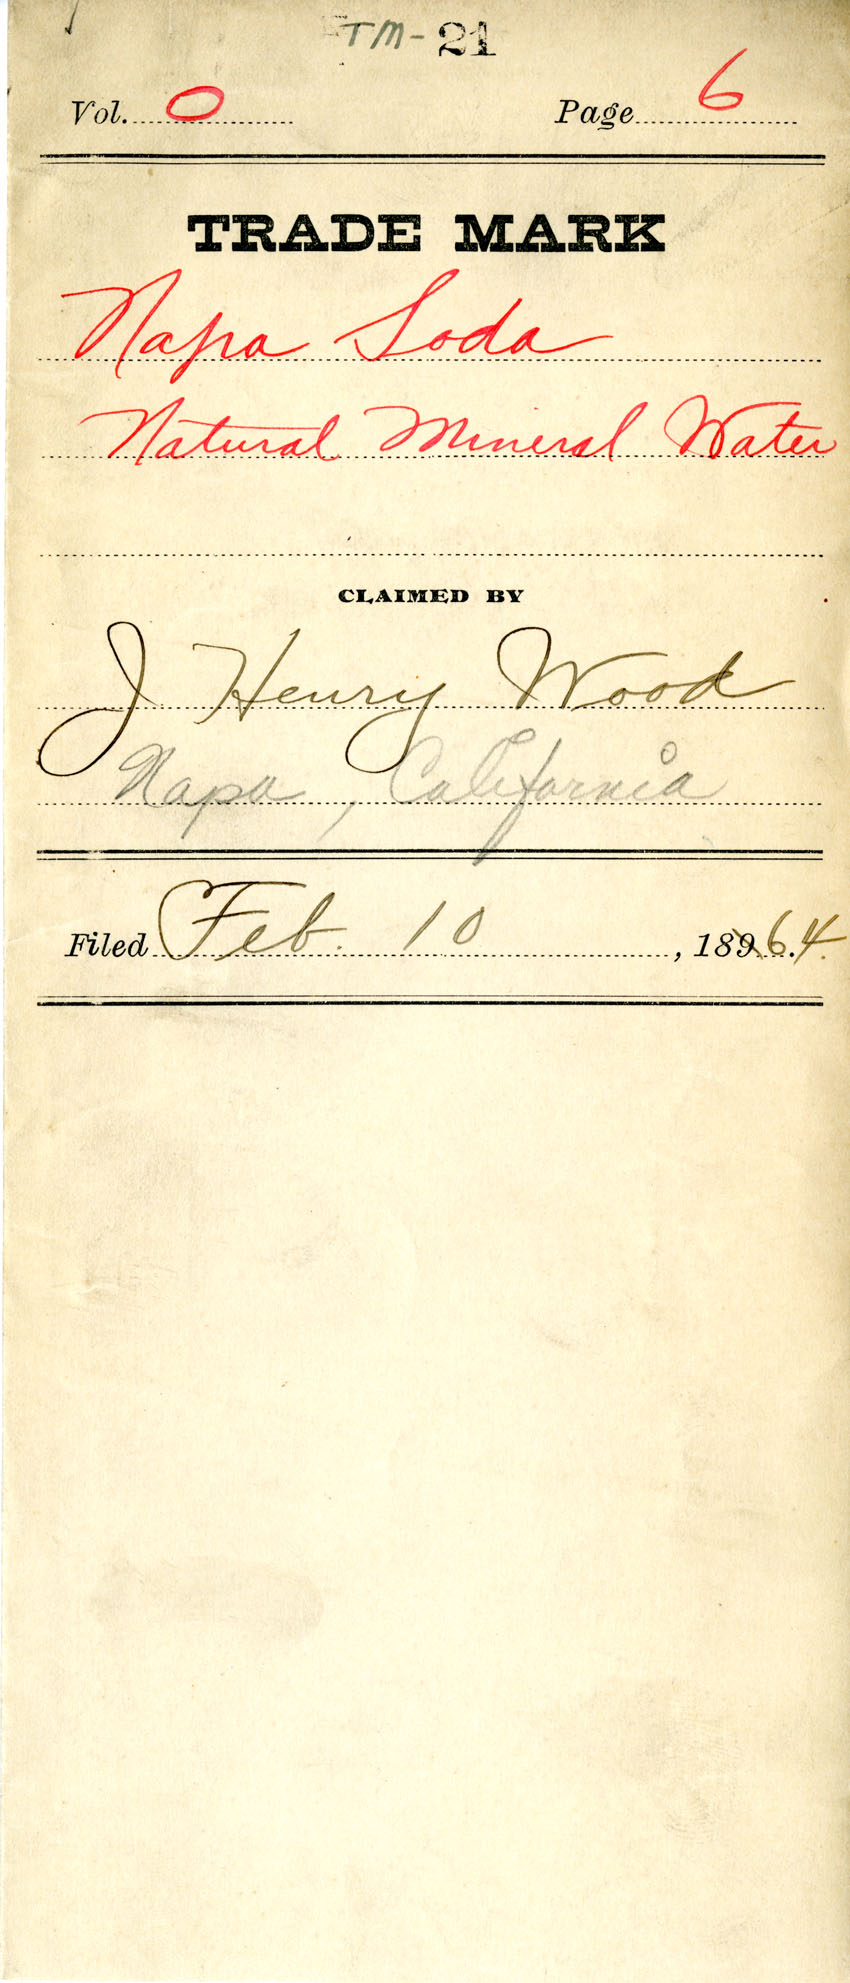 TM-21
Vol. 0 Page 6
TRADE MARK
Napa Soda
Natural Mineral Water
CLAIMED BY
J Henry Wood
Napa, California
Filed Feb. 10, 189 6.4.